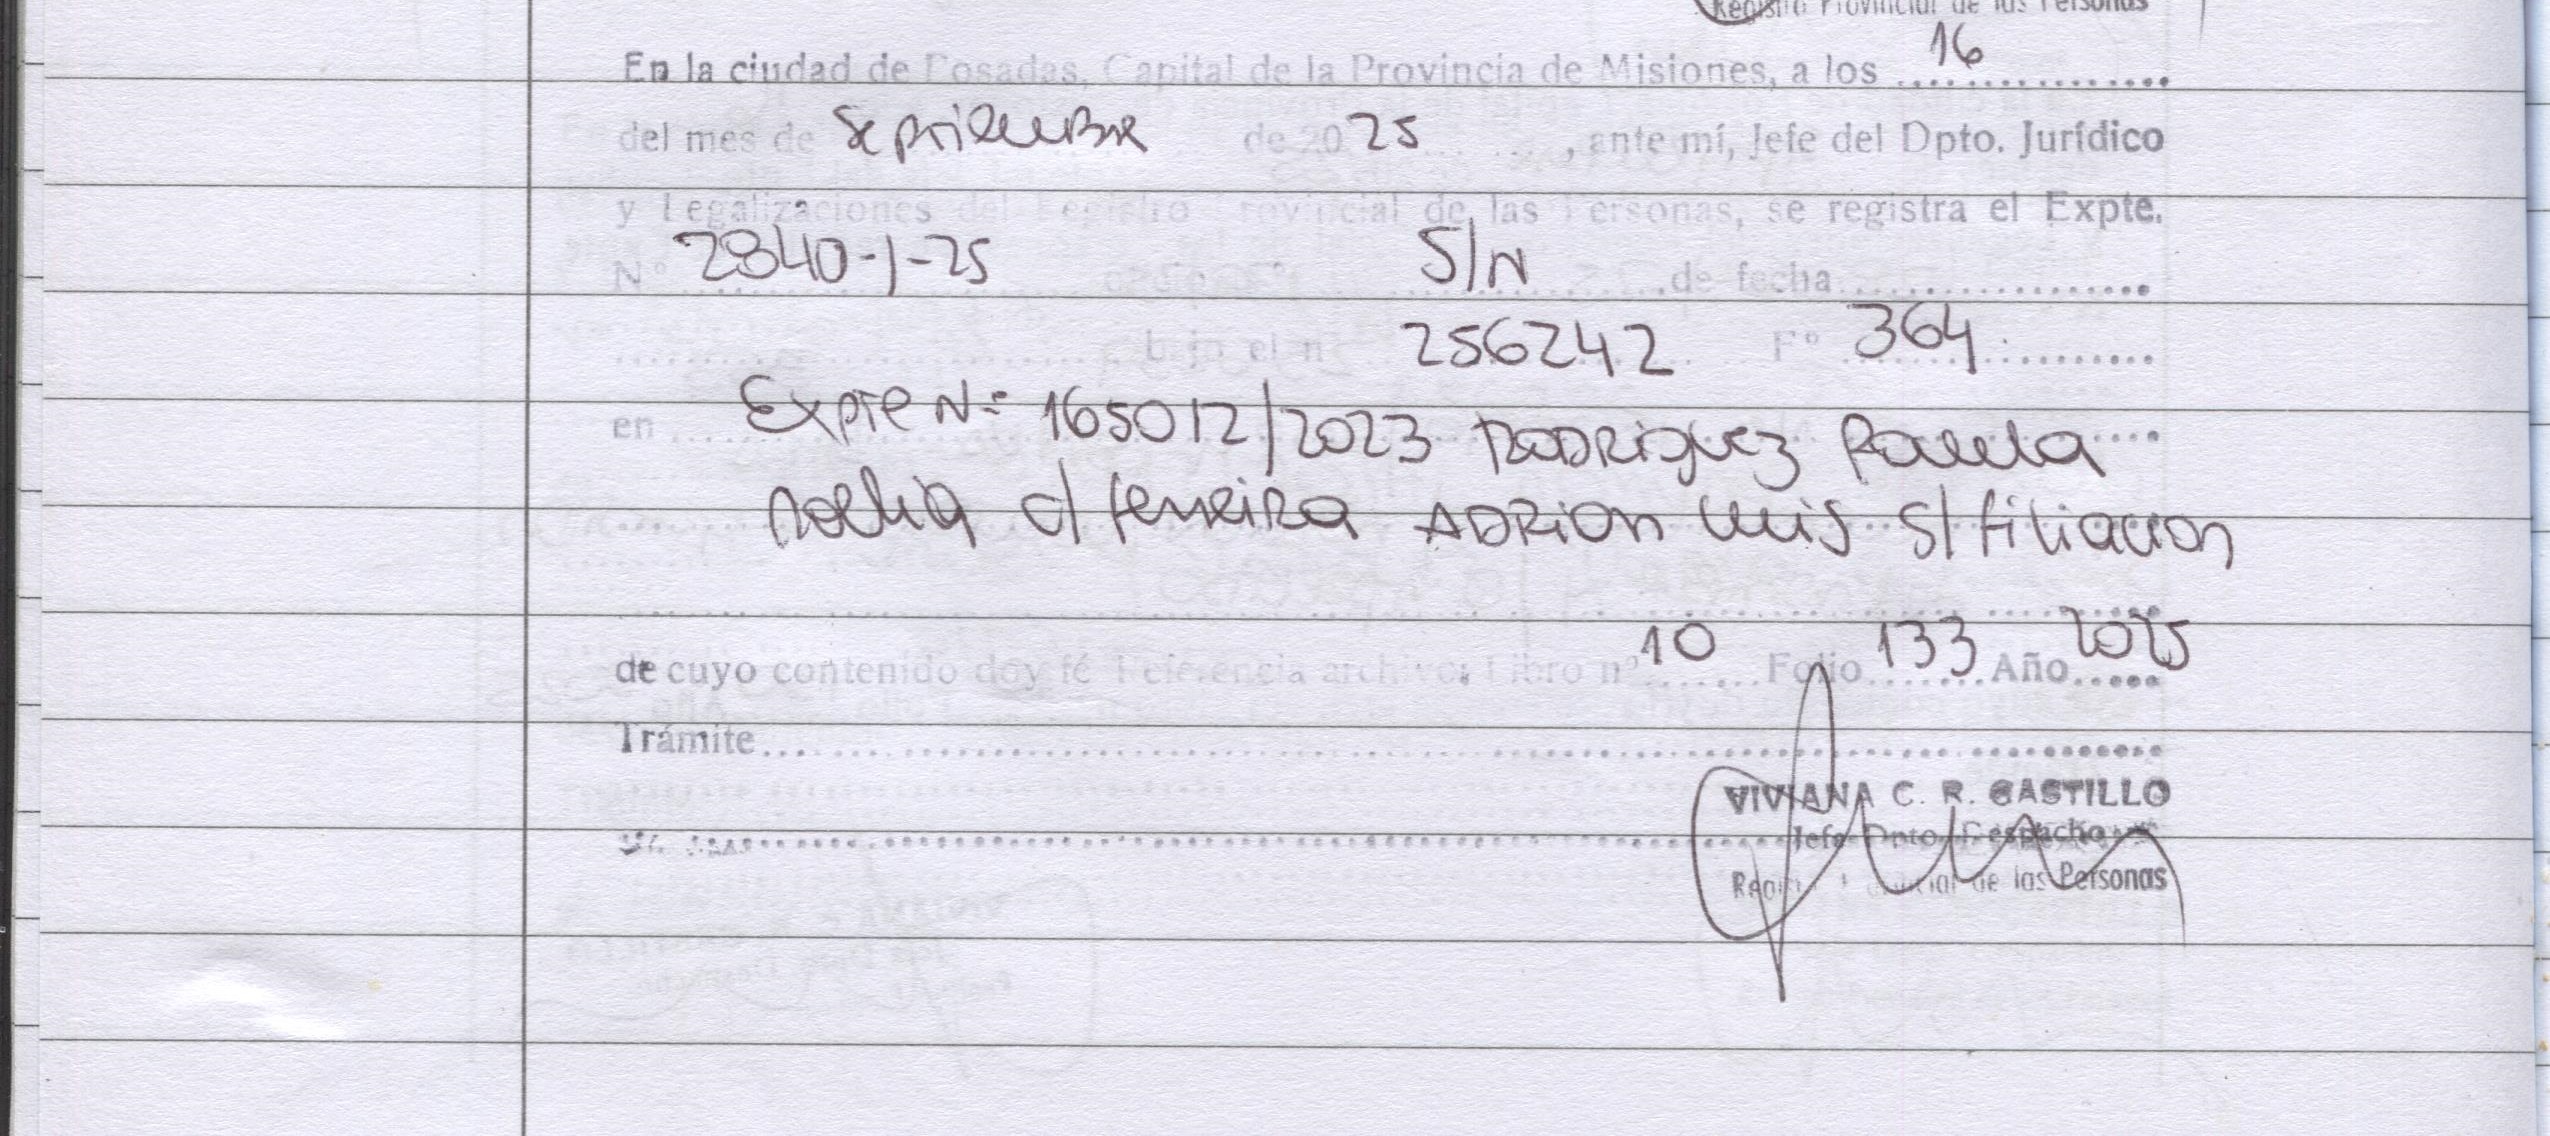 Registro Provincial de las Personas
En la ciudad de Posadas, Capital de la Provincia de Misiones, a los 16
del mes de Septiembre de 20 25, ante mí, Jefe del Dpto. Jurídico
y Legalizaciones del Registro Provincial de las Personas, se registra el Expte.
N° 2840-J-25 S/N de fecha
bajo el n° 256242 F° 364
en Expte N= 165012/2023 Rodriguez Paula
Noelia c/ Ferreira Adrian Luis S/ filiacion
de cuyo contenido doy fé Referencia archivo: Libro n° 10 Folio 133 Año 2025
Trámite
VIVIANA C. R. CASTILLO
Jefe Dpto. Despacho
Registro Provincial de las Personas